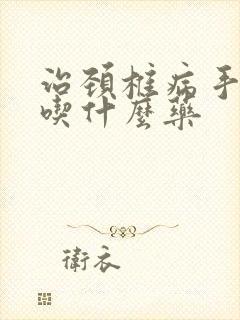 治颈椎病手
喫什麼藥
衛衣